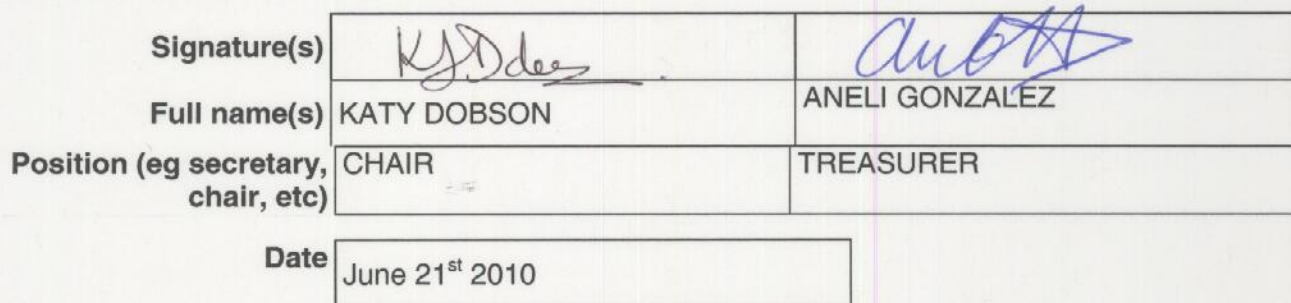 Signature(s)
Full name(s) KATY DOBSON ANELI GONZALEZ
Position (eg secretary, CHAIR TREASURER
chair, etc)
Date June 21st 2010